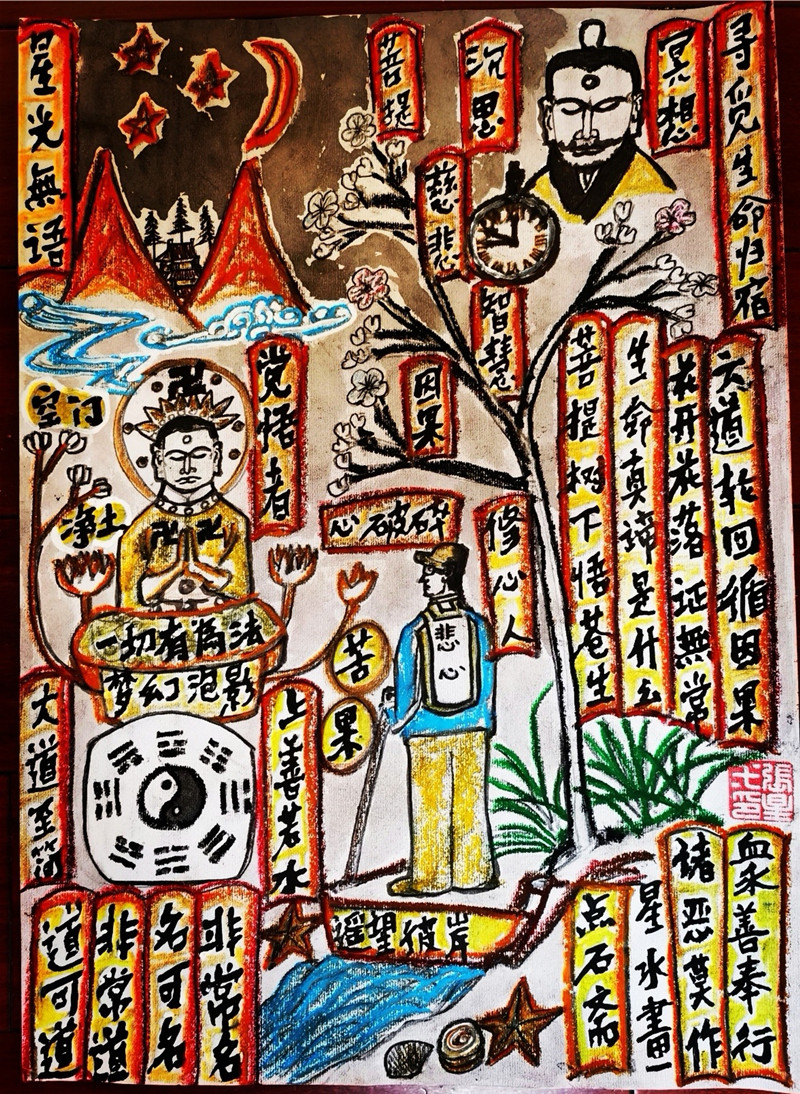 星光無語
菩提
沉思
冥想
寻觅生命归宿
慈悲
智慧
因果
觉悟者
空门
净土
心破破碎
修心人
六道轮回循因果
花开花落证無常
生命真谛是什么
菩提树下悟苍生
一切有為法
梦幻泡影
悲心
苦果
大道至简
上善若水
遥望彼岸
道可道
非常道
名可名
非常名
衆善奉行
诸恶莫作
星水畫
点石斋